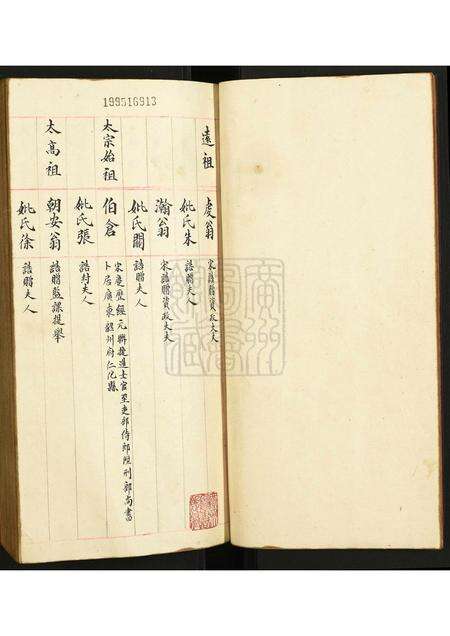 199516913
遠祖
虔翁
宋誥贈資政大夫
妣氏朱
誥贈夫人
瀚翁
宋誥贈資政大夫
妣氏關
誥贈夫人
太宗始祖
伯倉
宋慶歷經元聯捷進士官至吏部侍郎陞刑部尚書
卜居廣東韶州府仁化縣
妣氏張
誥封夫人
太高祖
朝安翁
誥贈監課提舉
妣氏徐
誥贈夫人